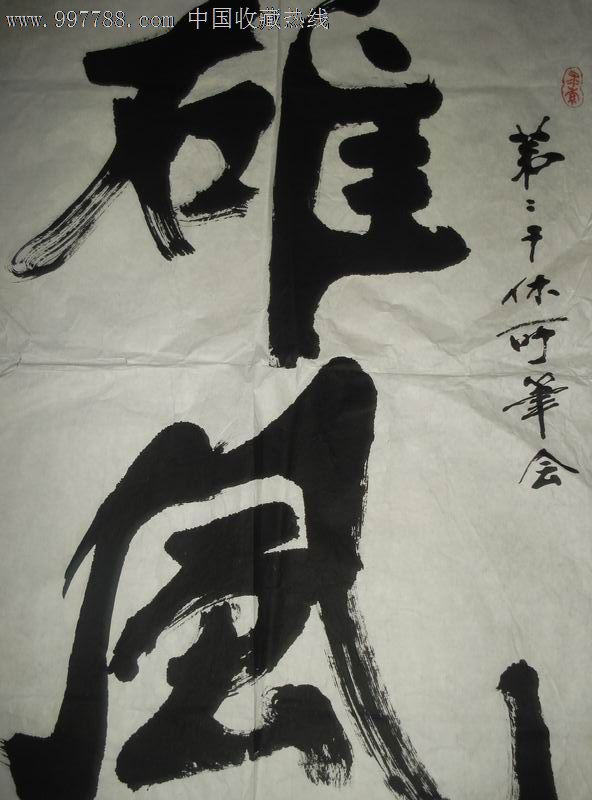 www.997788.com 中国收藏热线
第二干休所筆会
雄風